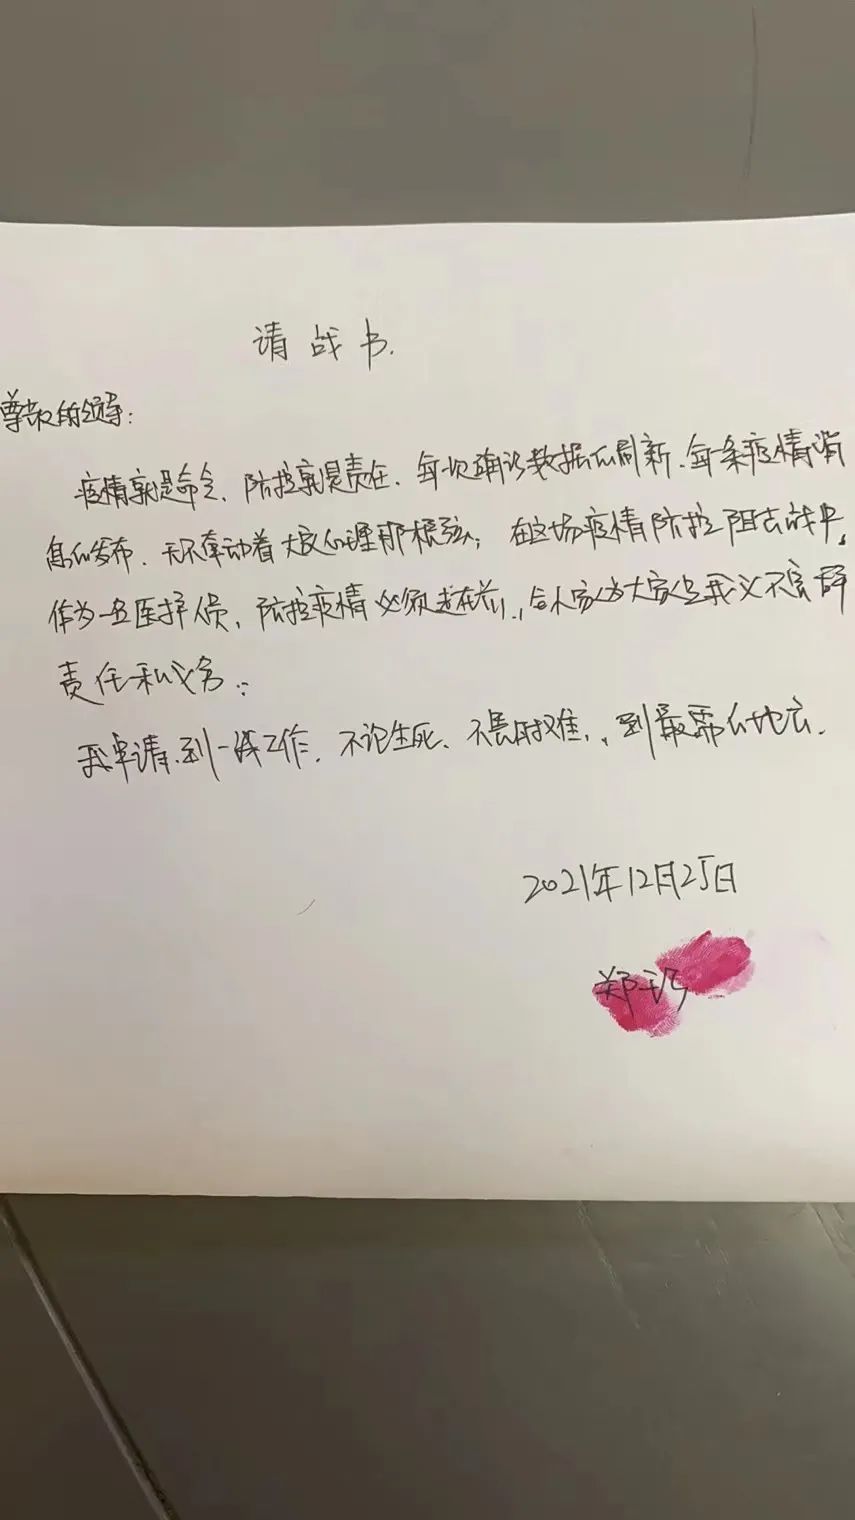 请战书.
尊敬的领导:
疫情就是命令、防控就是责任、每次确诊数据的刷新、每条疫情消
息的发布、无不牵动着大家心理那根弦; 在这场疫情防控阻击战中,
作为一名医护人员、防控疫情必须走在前, 舍小家为大家是我义不容辞
责任和义务.
我申请到一线工作、不论生死、不畏艰难, 到最需的地方.
2021年12月25日
郑